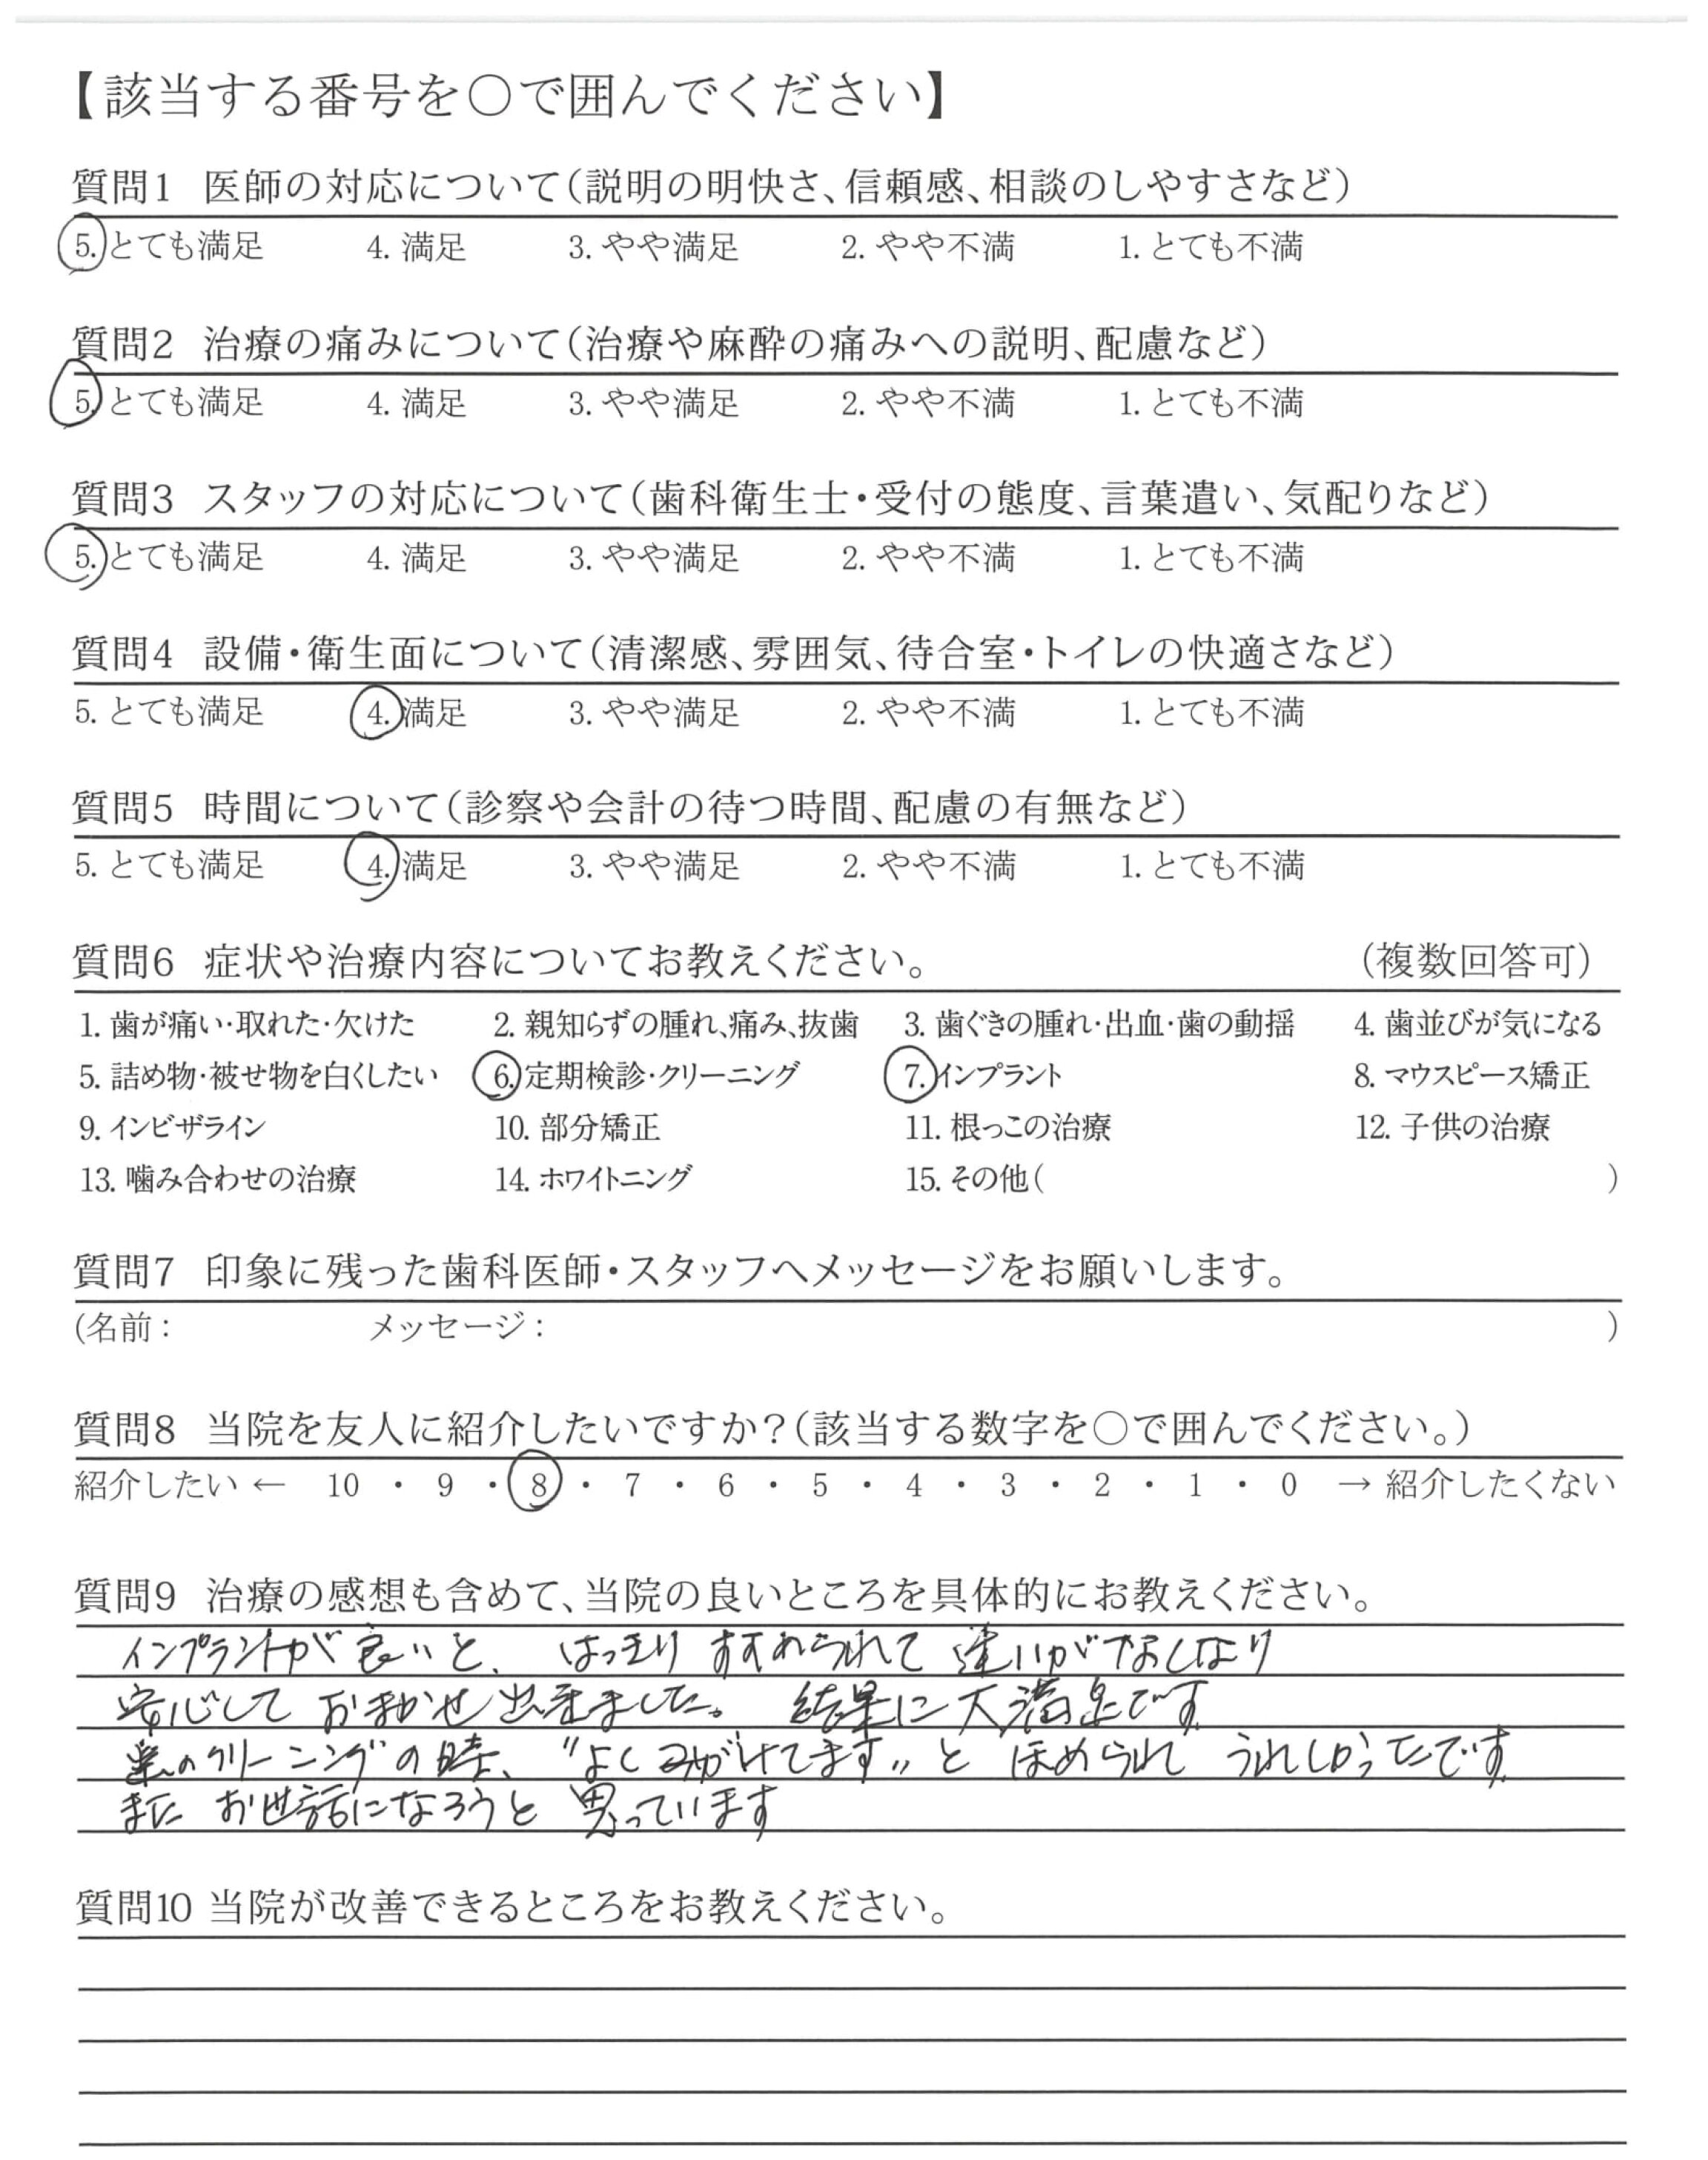 【該当する番号を○で囲んでください】
質問1 医師の対応について（説明の明快さ、信頼感、相談のしやすさなど）
5. とても満足 4. 満足 3. やや満足 2. やや不満 1. とても不満
質問2 治療の痛みについて（治療や麻酔の痛みへの説明、配慮など）
5. とても満足 4. 満足 3. やや満足 2. やや不満 1. とても不満
質問3 スタッフの対応について（歯科衛生士・受付の態度、言葉遣い、気配りなど）
5. とても満足 4. 満足 3. やや満足 2. やや不満 1. とても不満
質問4 設備・衛生面について（清潔感、雰囲気、待合室・トイレの快適さなど）
5. とても満足 4. 満足 3. やや満足 2. やや不満 1. とても不満
質問5 時間について（診察や会計の待つ時間、配慮の有無など）
5. とても満足 4. 満足 3. やや満足 2. やや不満 1. とても不満
質問6 症状や治療内容についてお教えください。 （複数回答可）
1. 歯が痛い・取れた・欠けた 2. 親知らずの腫れ、痛み、抜歯 3. 歯ぐきの腫れ・出血・歯の動揺 4. 歯並びが気になる
5. 詰め物・被せ物を白くしたい 6. 定期検診・クリーニング 7. インプラント 8. マウスピース矯正
9. インビザライン 10. 部分矯正 11. 根っこの治療 12. 子供の治療
13. 噛み合わせの治療 14. ホワイトニング 15. その他( )
質問7 印象に残った歯科医師・スタッフへメッセージをお願いします。
(名前： メッセージ： )
質問8 当院を友人に紹介したいですか？（該当する数字を○で囲んでください。）
紹介したい ← 10 ・ 9 ・ 8 ・ 7 ・ 6 ・ 5 ・ 4 ・ 3 ・ 2 ・ 1 ・ 0 → 紹介したくない
質問9 治療の感想も含めて、当院の良いところを具体的にお教えください。
インプラントが良いと、はっきりすすめられて迷いがなくなり
安心しておまかせ出来ました。結果に大満足です
歯のクリーニングの時、"よくみがけてます"とほめられうれしかったです
またお世話になろうと思っています
質問10 当院が改善できるところをお教えください。